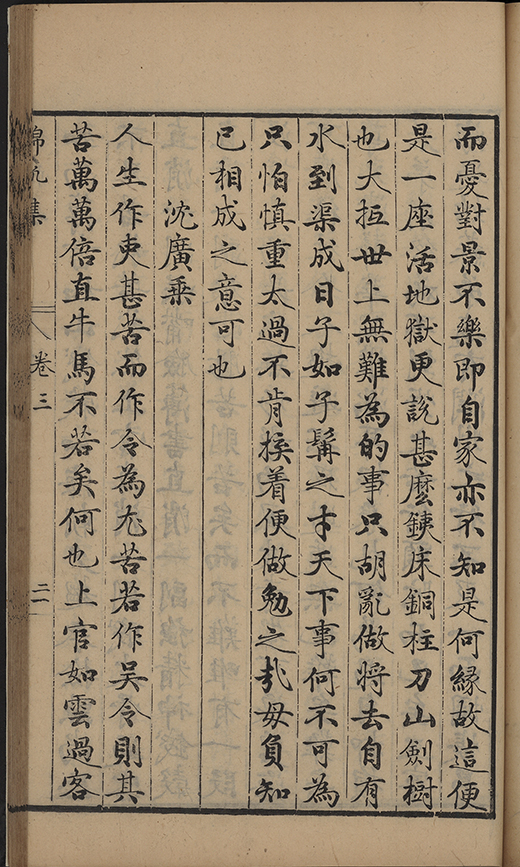 而憂對景不樂即自家亦不知是何緣故這便
是一座活地獄更說甚麼鐵床銅柱刀山劍樹
也大抵世上無難為的事只胡亂做將去自有
水到渠成日子如子髯之才天下事何不可為
只怕慎重太過不肯挨着便做勉之哉毋負知
已相成之意可也
沈廣乗
人生作吏甚苦而作令為尤苦若作吳令則其
苦萬萬倍直牛馬不若矣何也上官如雲過客
錦帆集
卷三
二